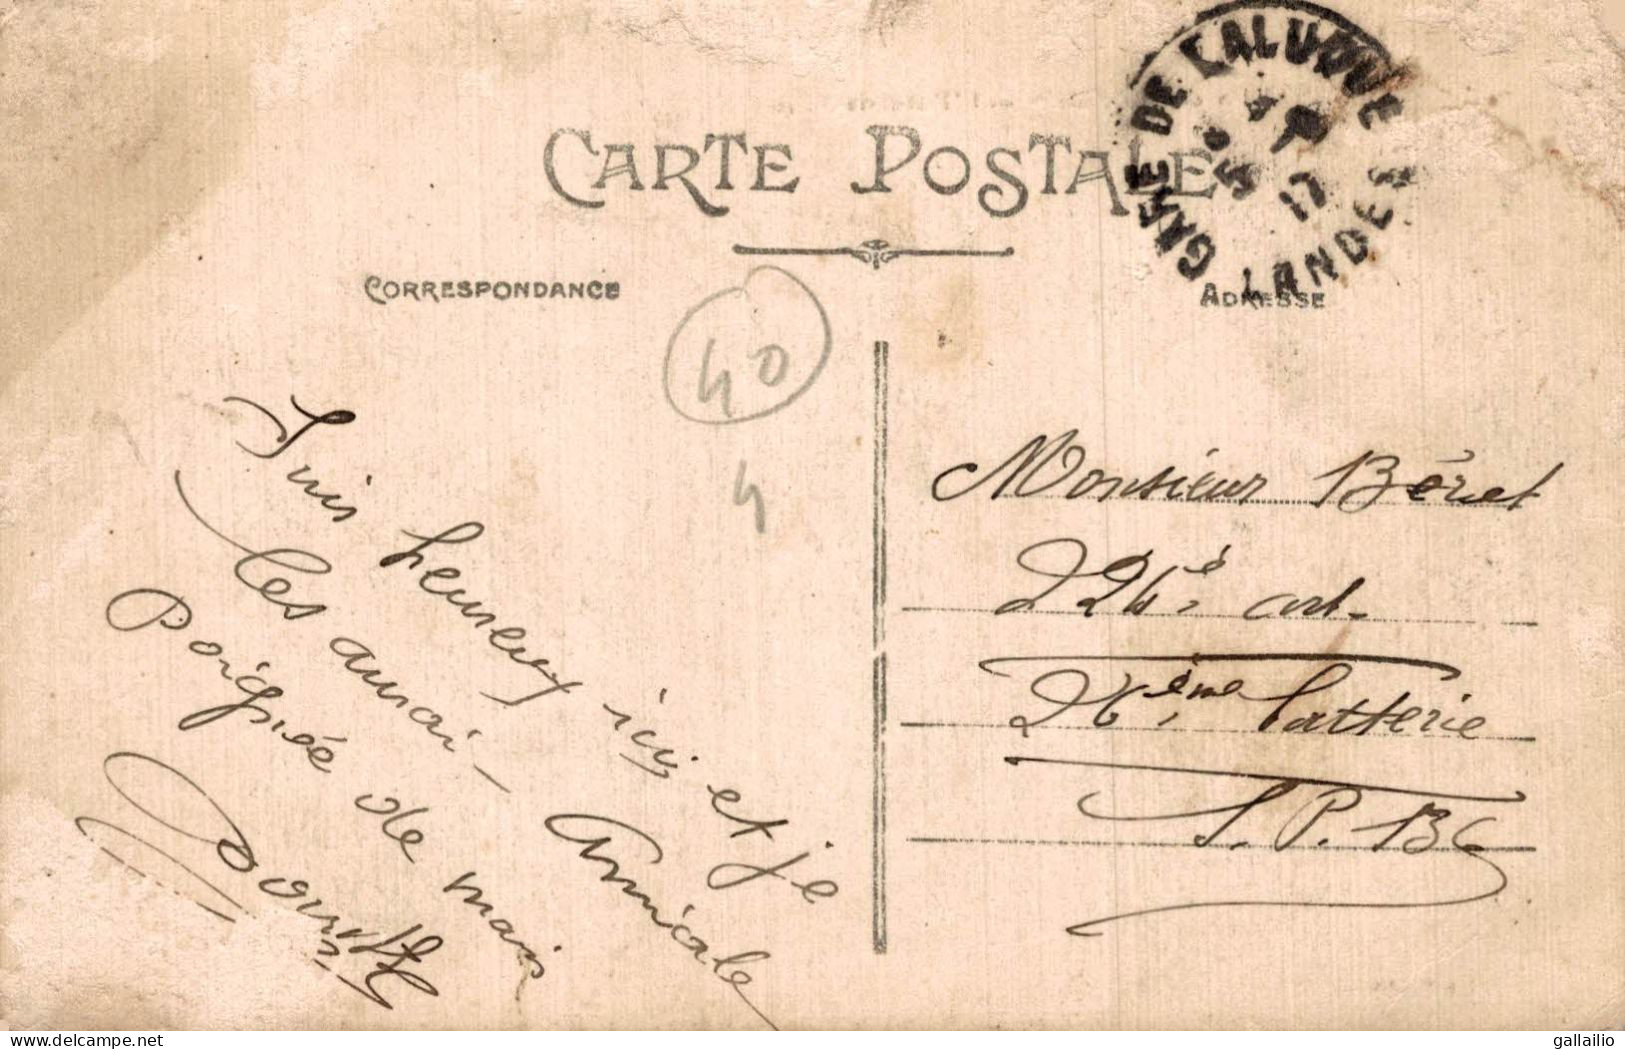 CARTE POSTALE
GARE DE LALUQUE
LANDES
17
CORRESPONDANCE
ADRESSE
40
4
Suis heureux ici et je
les aurai - Amicale
Poignée de main
Monsieur Béret
226è art.
26ème batterie
S.P. 136
gallailio
delcampe.net